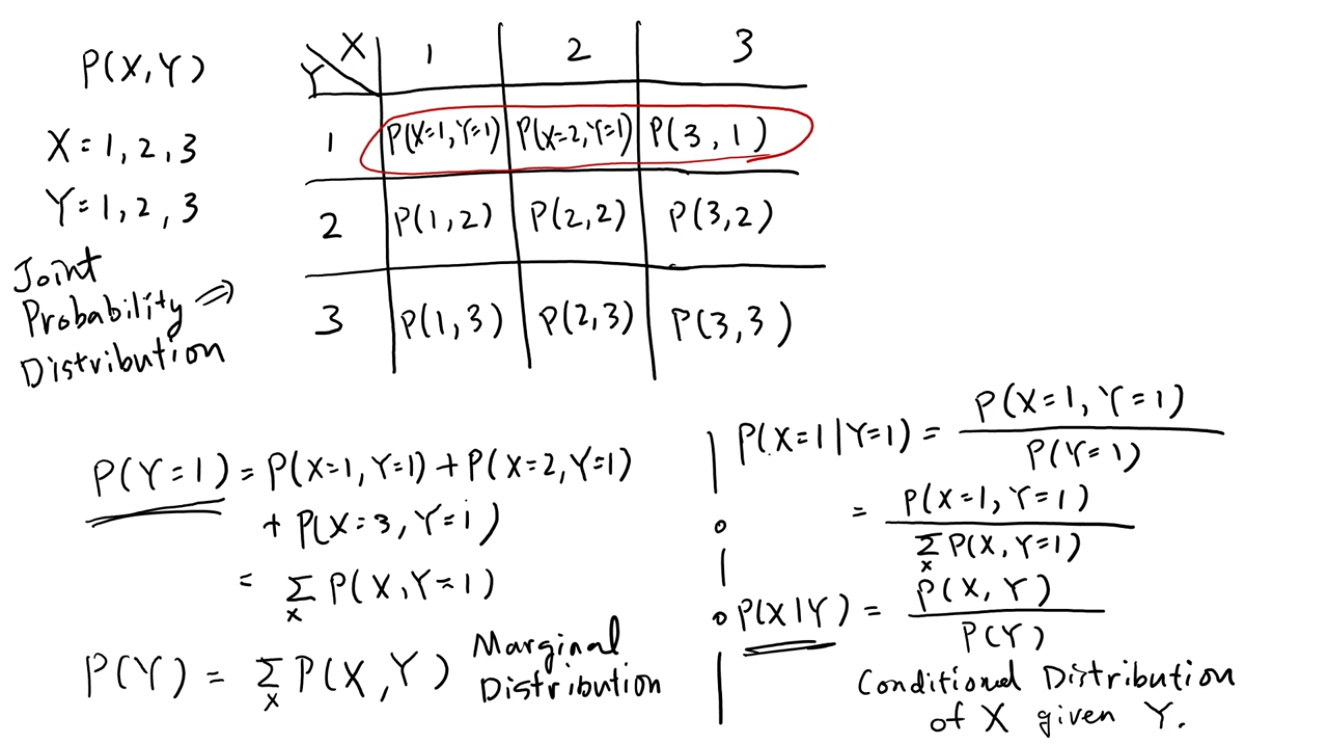 P(X,Y)
X=1,2,3
Y=1,2,3
Joint
Probability ⇒
Distribution
Y X 1 2 3
1 P(X=1,Y=1) P(X=2,Y=1) P(3,1)
2 P(1,2) P(2,2) P(3,2)
3 P(1,3) P(2,3) P(3,3)
P(Y=1) = P(X=1,Y=1) + P(X=2,Y=1)
+ P(X=3,Y=i)
= Σ_X P(X,Y=1)
P(Y) = Σ_X P(X,Y) Marginal
Distribution
P(X=1|Y=1) = P(X=1,Y=1) / P(Y=1)
= P(X=1,Y=1) / Σ_X P(X,Y=1)
P(X|Y) = P(X,Y) / P(Y)
Conditional Distribution
of X given Y.